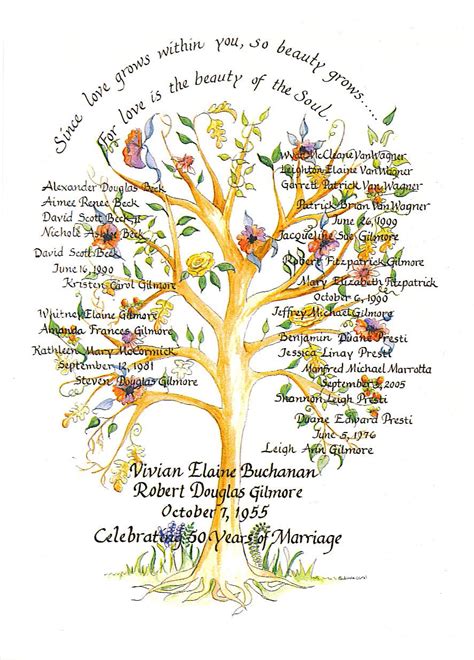 Since love grows within you, so beauty grows.....
For love is the beauty of the Soul.
Alexander Douglas Beck
Aimee Renee Beck
David Scott Beck Jr
Nichole Ashlee Beck
David Scott Beck
June 16, 1990
Kristen Carol Gilmore
Whitney Elaine Gilmore
Amanda Frances Gilmore
Kathleen Mary McCormick
September 12, 1981
Steven Douglas Gilmore
McCleane VanWagner
Leighton Elaine VanWagner
Garrett Patrick Van Wagner
Patrick Brian Van Wagner
June 26, 1999
Jacqueline Sue Gilmore
Robert Fitzpatrick Gilmore
Mary Elizabeth Fitzpatrick
October 6, 1990
Jeffrey Michael Gilmore
Benjamin Duane Presti
Jessica Linay Presti
Manfred Michael Marrotta
September 3, 2005
Shannon Leigh Presti
Duane Edward Presti
June 5, 1976
Leigh Ann Gilmore
Vivian Elaine Buchanan
Robert Douglas Gilmore
October 7, 1955
Celebrating 50 Years of Marriage